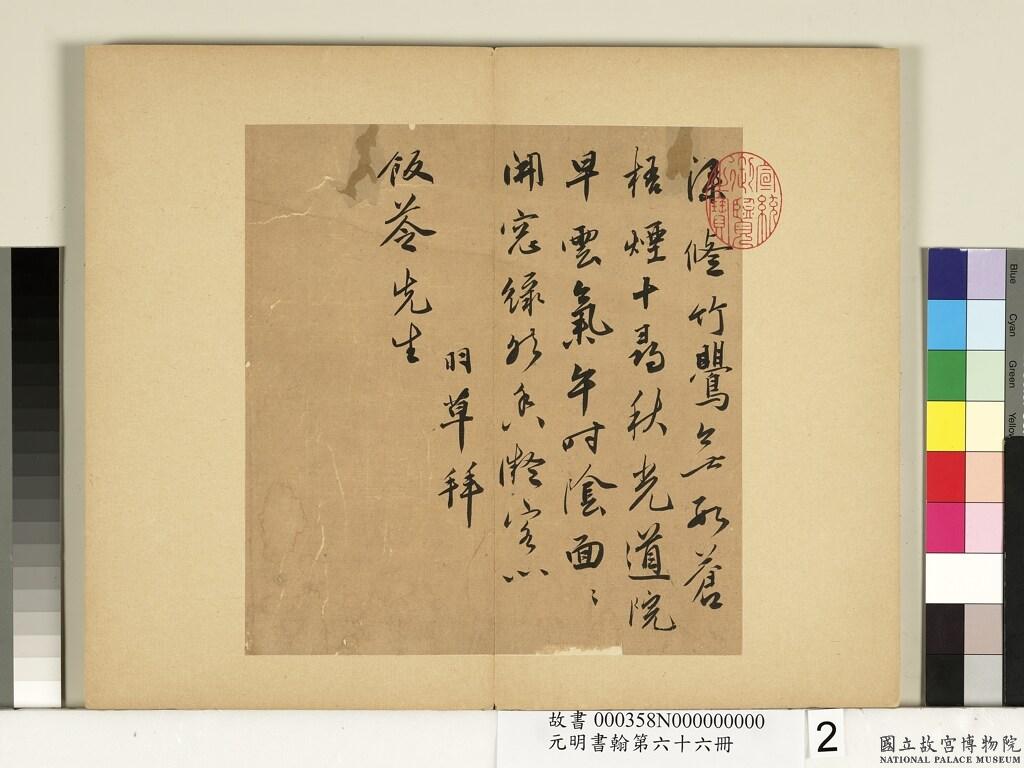 深修竹鸎無蒼
梧煙十尋秋光道院
早雲氣午時陰面〻
開窓綠然香凝客心
草拜
飯苓先生
宣統御覽之寶
Blue
Cyan
Green
故書 000358N000000000
元明書翰第六十六冊
2
國立故宮博物院
NATIONAL PALACE MUSEUM